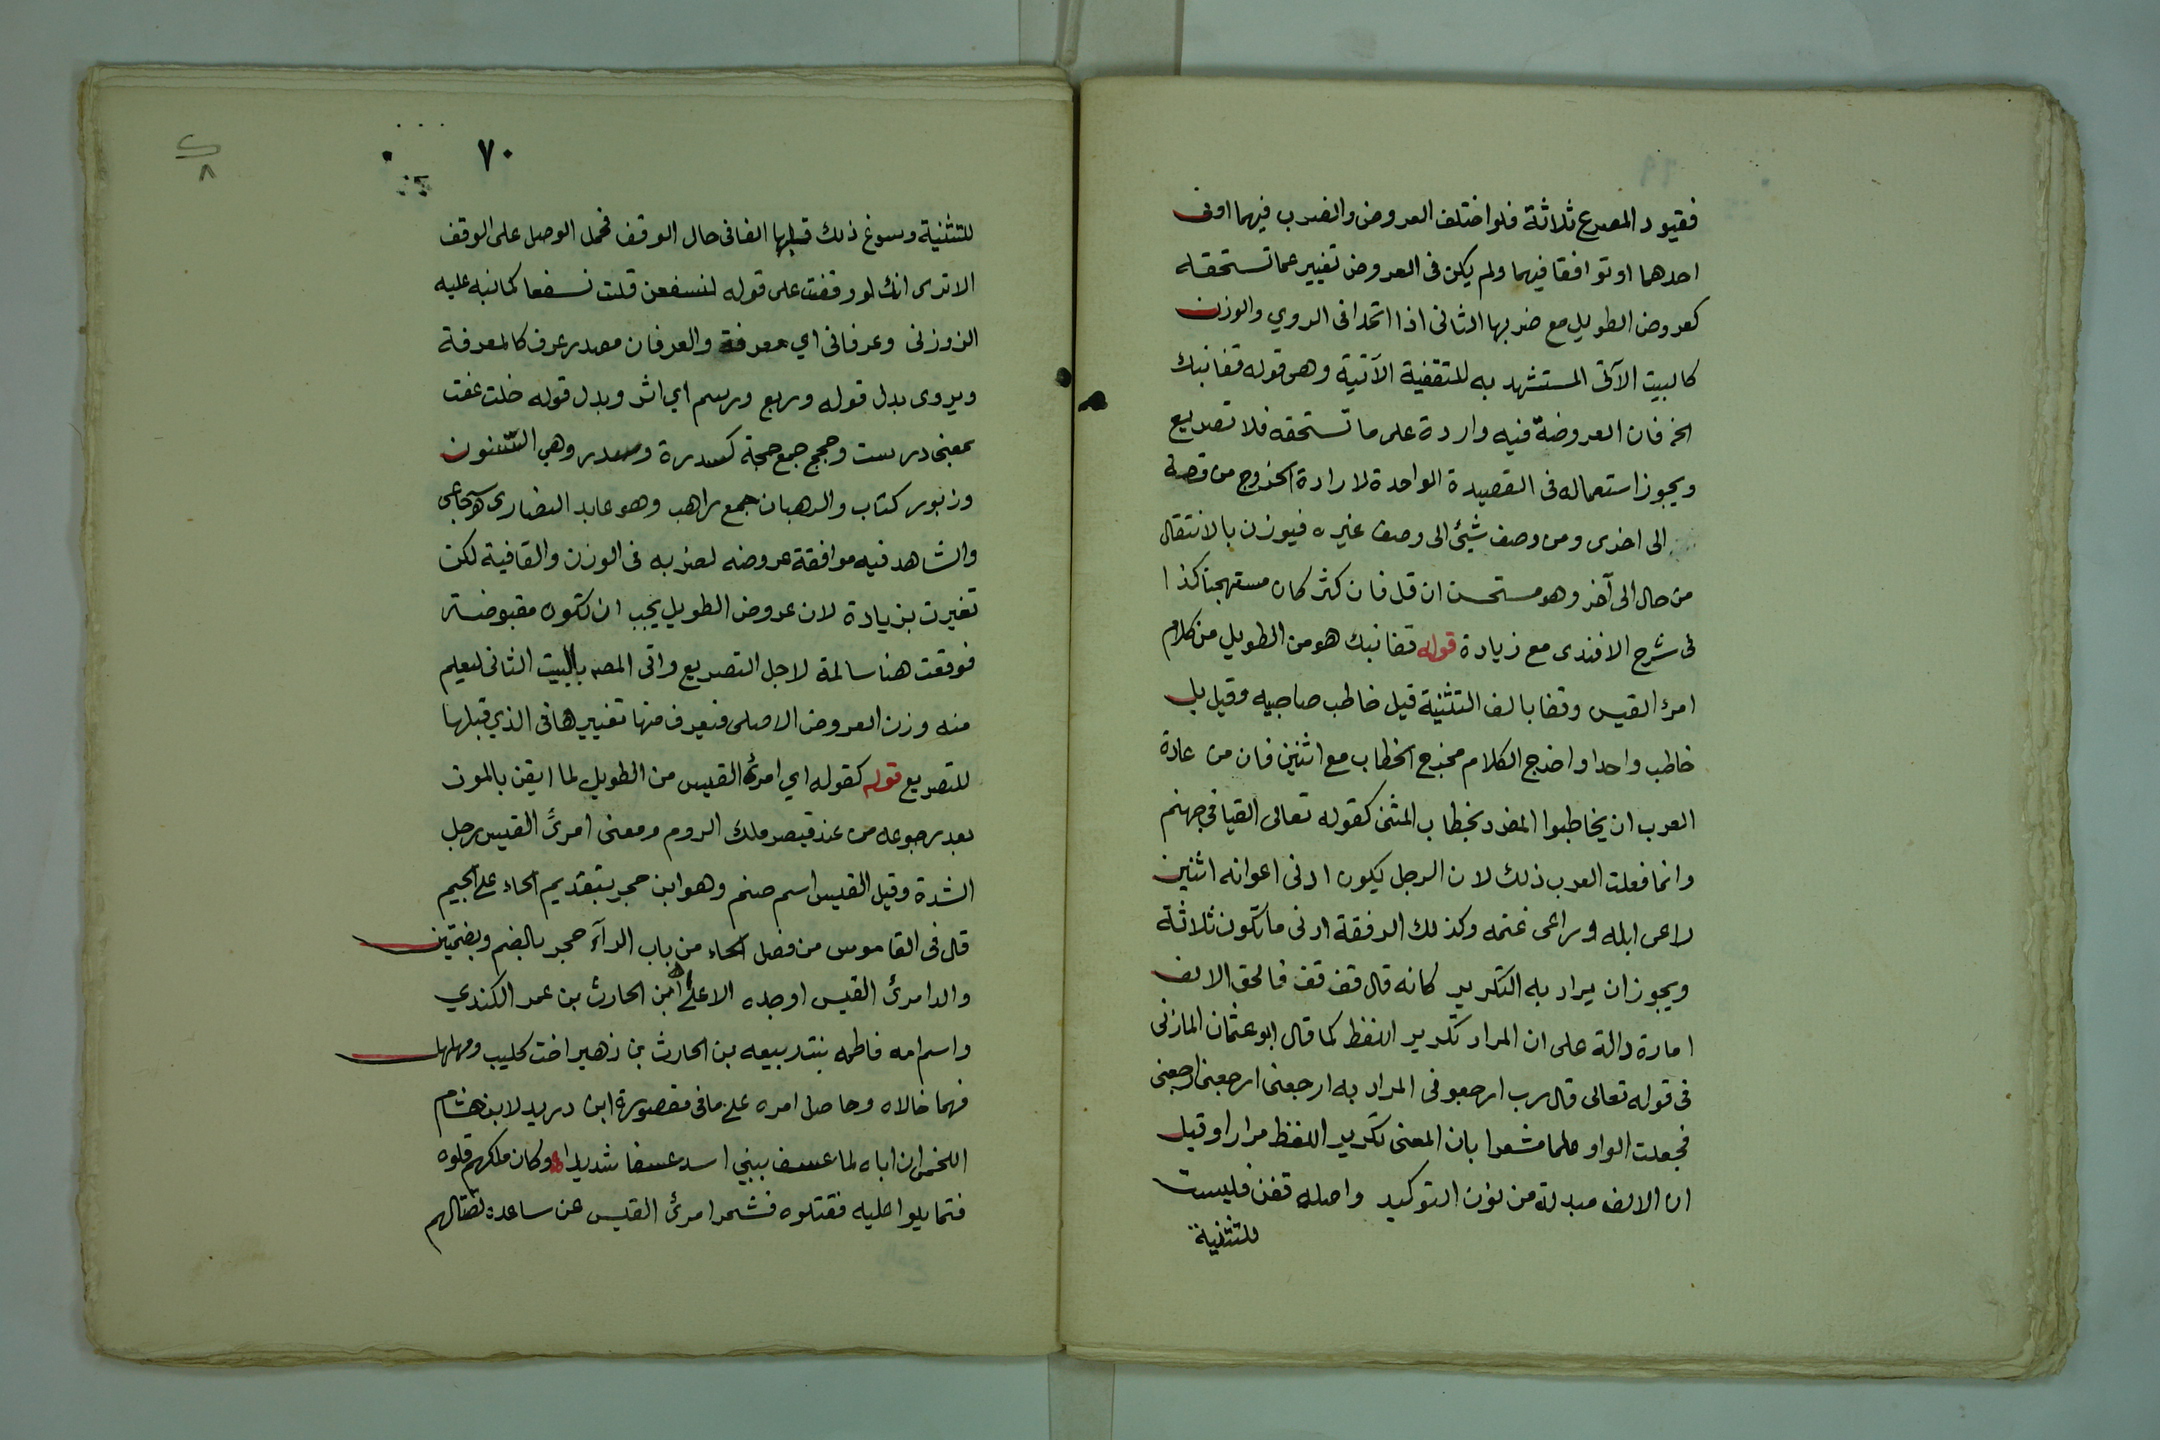 فقيود المصرع ثلاثة فلو اختلف العروض والضرب فيهما او فى
احدهما او توافقا فيهما ولم يكن فى العروض تغيير عما تستحقه
كعروض الطويل مع ضربها الثانى اذا اتحدا فى الروي والوزن
كالبيت الآتى المستشهد به للتقفية الآتية وهو قوله قفا نبك
الخ فان العروضة فيه واردة على ما تستحقه فلا تصريع
ويجوز استعماله فى القصيدة الواحدة لارادة الخروج من قصة
الى اخرى ومن وصف شيئ الى وصف غيره فيوزن بالانتقال
من حال الى آخر وهو مستحسن ان قل فان كثر كان مستهجنا كذا
فى شرح الافندى مع زيادة قوله قفا نبك هو من الطويل من كلام
امرء القيس وقفا بالف التثنية قيل خاطب صاحبيه وقيل بل
خاطب واحدا واخرج الكلام مخرج الخطاب مع اثنين فان من عادة
العرب ان يخاطبوا المفرد بخطاب المثنى كقوله تعالى القيا فى جهنم
وانما فعلت العرب ذلك لان الرجل يكون ادنى اعوانه اثنين
راعى ابله وراعى غنمه وكذلك الرفقة ادنى ما تكون ثلاثة
ويجوز ان يراد به التكرير كانه قال قف قف فالحق الالف
امارة دالة على ان المراد تكرير اللفظ كما قال ابو عثمان المازنى
فى قوله تعالى قال رب ارجعونى المراد به ارجعنى ارجعنى ارجعنى
فجعلت الواو علما مشعرا بان المعنى تكرير اللفظ مرارا وقيل
ان الالف مبدلة من نون التوكيد واصله قفن فليست
للتثنية
٧٠
للتثنية وسوغ ذلك قبلها الفا فى حال الوقف فحمل الوصل على الوقف
الا ترى انك لو وقفت على قوله لنسفعن قلت نسفعا كما نبه عليه
الزوزنى وعرفانى اي معرفة والعرفان مصدر عرف كالمعرفة
ويروى بدل قوله وربع ورسم اي اثر وبدل قوله خلت عفت
بمعنى درست وحجج جمع حجة كسدرة وسدر وهي السنون
وزبور كتاب والرهبان جمع راهب وهو عابد النصارى سجاعى
والشاهد فيه موافقة عروضه لضربه فى الوزن والقافية لكن
تغيرت بزيادة لان عروض الطويل يجب ان تكون مقبوضة
فوقعت هنا سالمة لاجل التصريع واتى المصـ بالبيت الثانى ليعلم
منه وزن العروض الاصلى فيعرف منها تغييرها فى الذي قبلها
للتصريع قوله كقوله اي امرئ القيس من الطويل لما ايقن بالموت
بعد رجوعه من عند قيصر ملك الروم ومعنى امرئ القيس رجل
الشدة وقيل القيس اسم صنم وهو ابن حجر بتقديم الحاء على الجيم
قال فى القاموس من فصل الحاء من باب الرآء حجر بالضم وبضمتين
والد امرئ القيس او جده الاعلى ابن الحارث بن عمر الكندي
واسم امه فاطمه بنت ربيعه بن الحارث بن زهير اخت كليب ومهلهل
فهما خالاه وحاصل امره على ما فى مقصورة ابن دريد لابن هشام
اللخمى ان اباه لما عسف ببني اسد عسفا شديدا وكان ملكهم قلوه
فتمايلوا عليه فقتلوه فشمر امرئ القيس عن ساعده لقتالهم